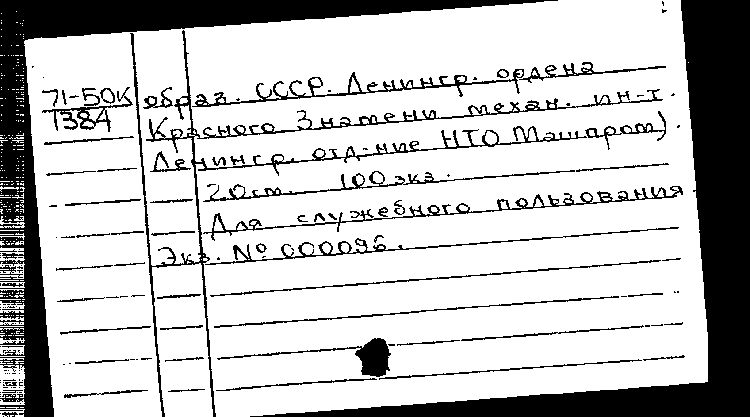 71-БОК образ. СССР. Ленингр. ордена
Т384 Красного Знамени механ. ин-т.
Ленингр. отд-ние НТО Машпром).
20см. 100 экз.
Для служебного пользования.
Экз. № 000096.